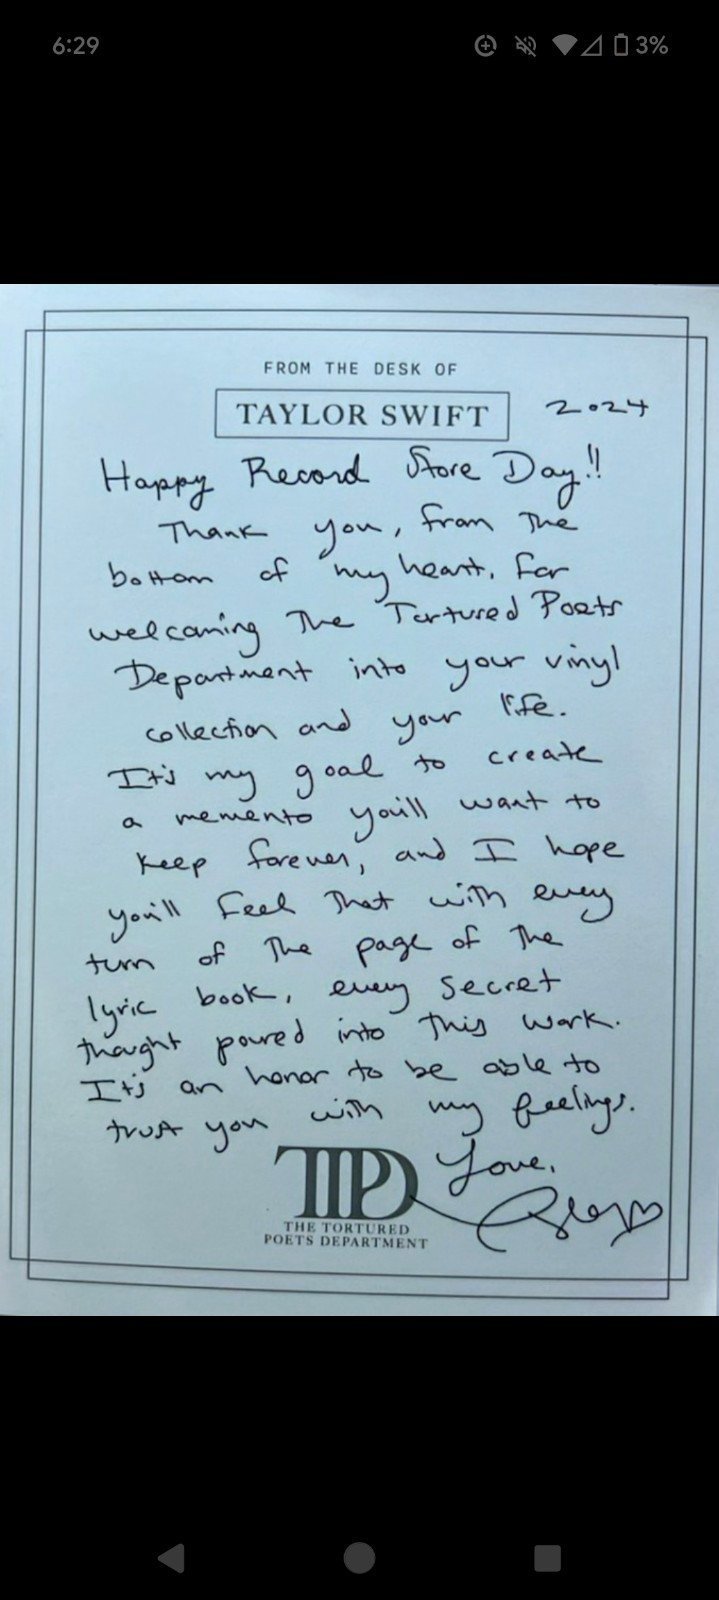 6:29
3%
FROM THE DESK OF
TAYLOR SWIFT
2024
Happy Record Store Day!!
Thank you, from the
bottom of my heart, for
welcoming The Tortured Poets
Department into your vinyl
collection and your life.
It's my goal to create
a memento you'll want to
keep forever, and I hope
you'll feel that with every
turn of the page of the
lyric book, every secret
thought poured into this work.
It's an honor to be able to
trust you with my feelings.
Love,
TTPD
THE TORTURED
POETS DEPARTMENT